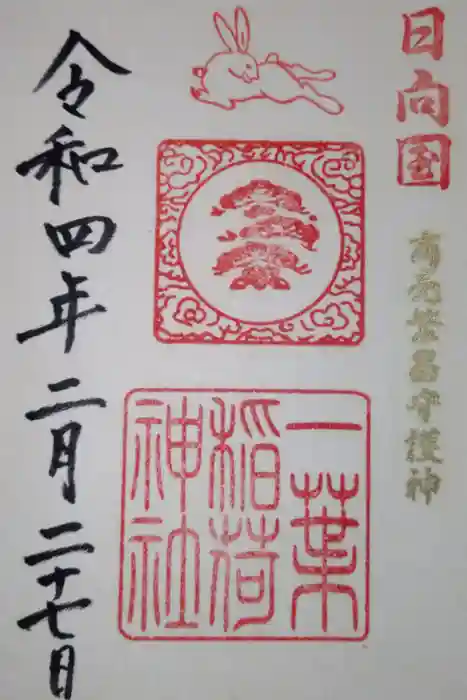 日向国
商売繁昌守護神
一葉
稲荷
神社
令和四年二月二十七日